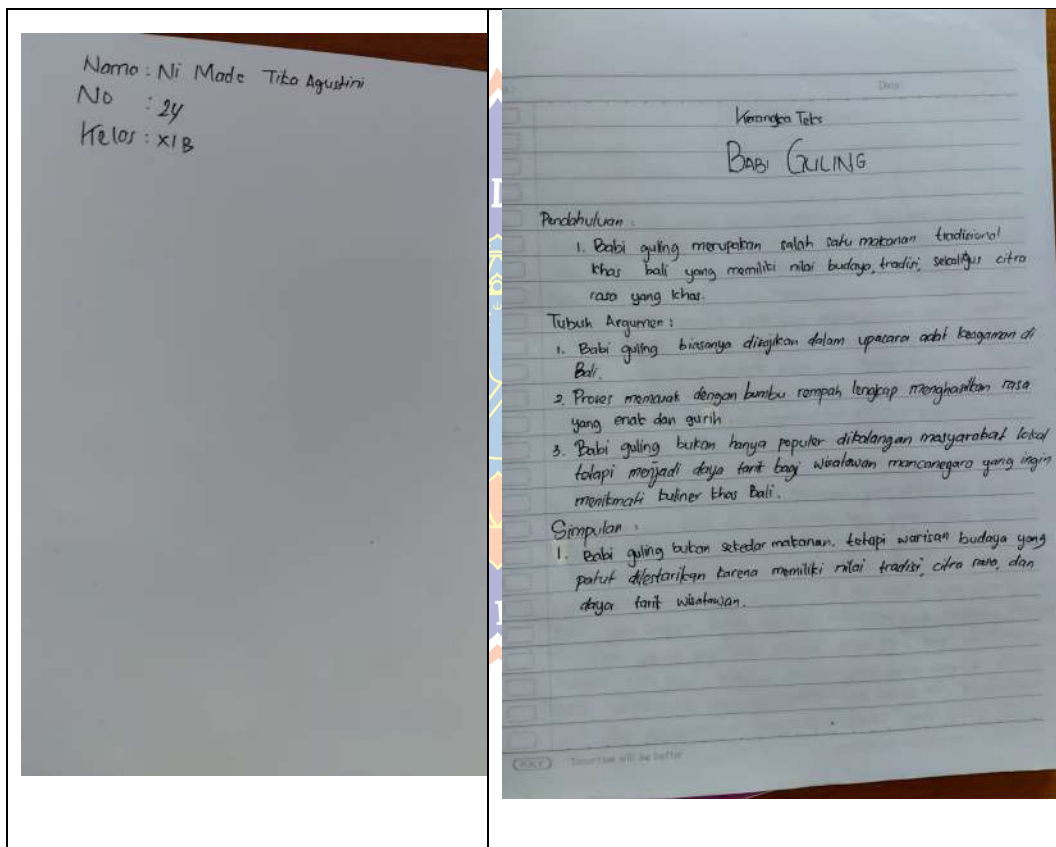 Nama : Ni Made Tika Agustini
No : 24
Kelas : XI B
Date:
Kerangka Teks
BABI GULING
Pendahuluan :
1. Babi guling merupakan salah satu makanan tradisional
khas bali yang memiliki nilai budaya, tradisi, sekaligus citra
rasa yang khas.
Tubuh Argumen :
1. Babi guling biasanya disajikan dalam upacara adat keagaman di
Bali.
2. Proses memasak dengan bumbu rempah lengkap menghasilkan rasa
yang enak dan gurih
3. Babi guling bukan hanya populer dikalangan masyarakat lokal
tatapi menjadi daya tarik bagi wisatawan mancanegara yang ingin
menikmati kuliner khas Bali.
Simpulan :
1. Babi guling bukan sekedar makanan, tetapi warisan budaya yang
patut dilestarikan karena memiliki nilai tradisi, citra rasa, dan
daya tarik wisatawan.
KKY Tomorrow will be better